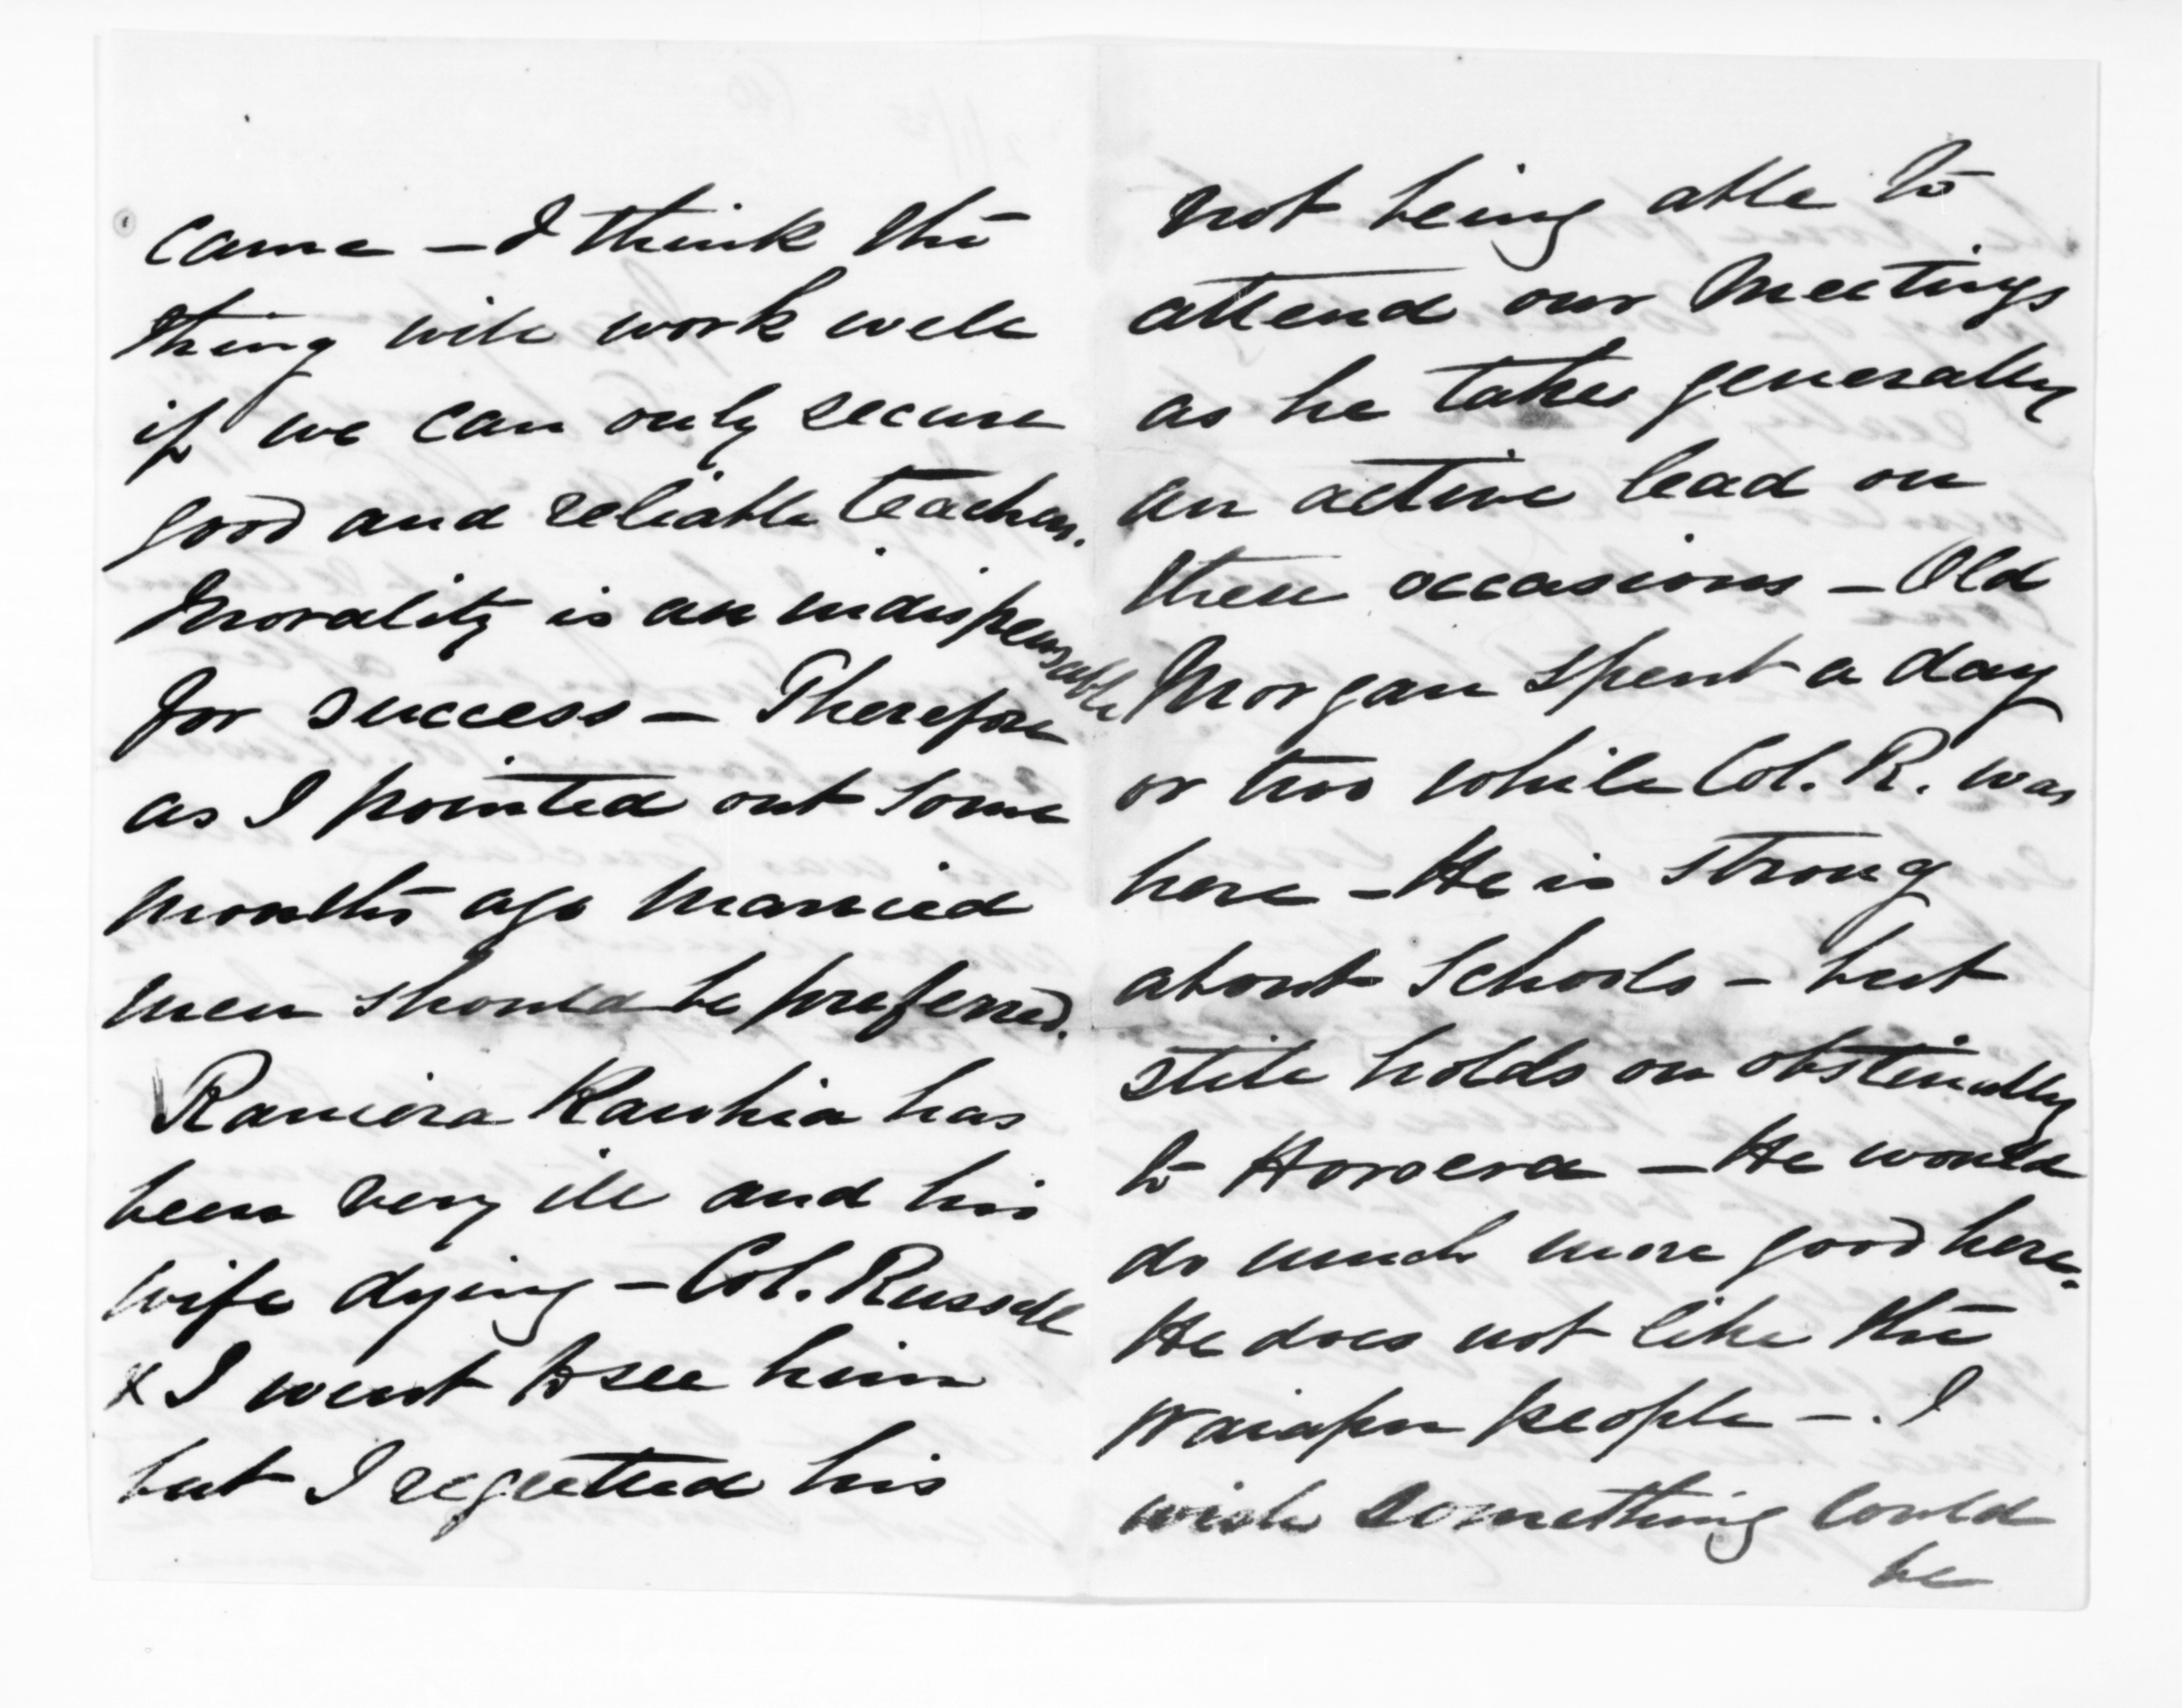 came – I think the
thing will work well
if we can only secure
good and reliable teachers.
Morality is an indispensable
for success – Therefore
as I pointed out some
months ago married
men should be preferred.
Raniera Kawhia has
been very ill and his
wife dying – Col. Russell
& I went to see him
but I regretted his
not being able to
attend our meetings
as he takes generally
an active lead on
these occasions – Old
Morgan spent a day
or two while Col. R. was
here – He is strong
about Schools – but
still holds on obstinately
to Horoera – He would
do much more good here.
He does not like the
Waiapu people – . I
wish something could
be